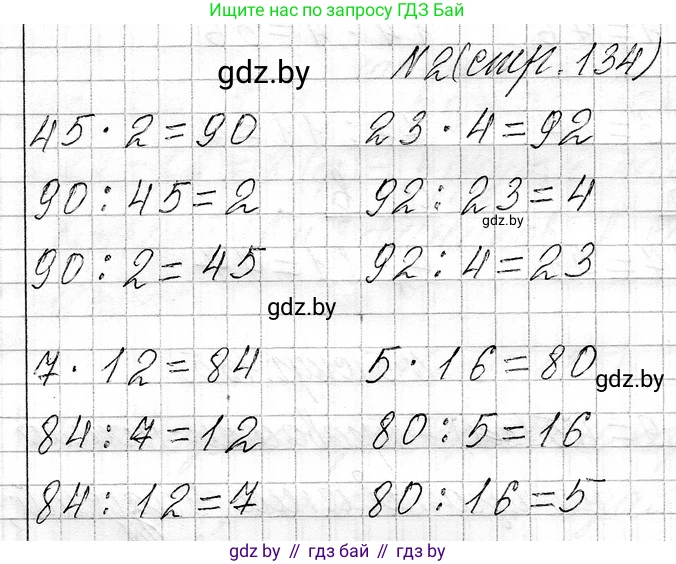 Ищите нас по запросу ГДЗ Бай
gdz.by
N2(стр. 134)
45 · 2 = 90 23 · 4 = 92
90 : 45 = 2 92 : 23 = 4
gdz.by
90 : 2 = 45 92 : 4 = 23
gdz.by
7 · 12 = 84 5 · 16 = 80
gdz.by
84 : 7 = 12 80 : 5 = 16
84 : 12 = 7 80 : 16 = 5
gdz by // гдз бай // gdz by